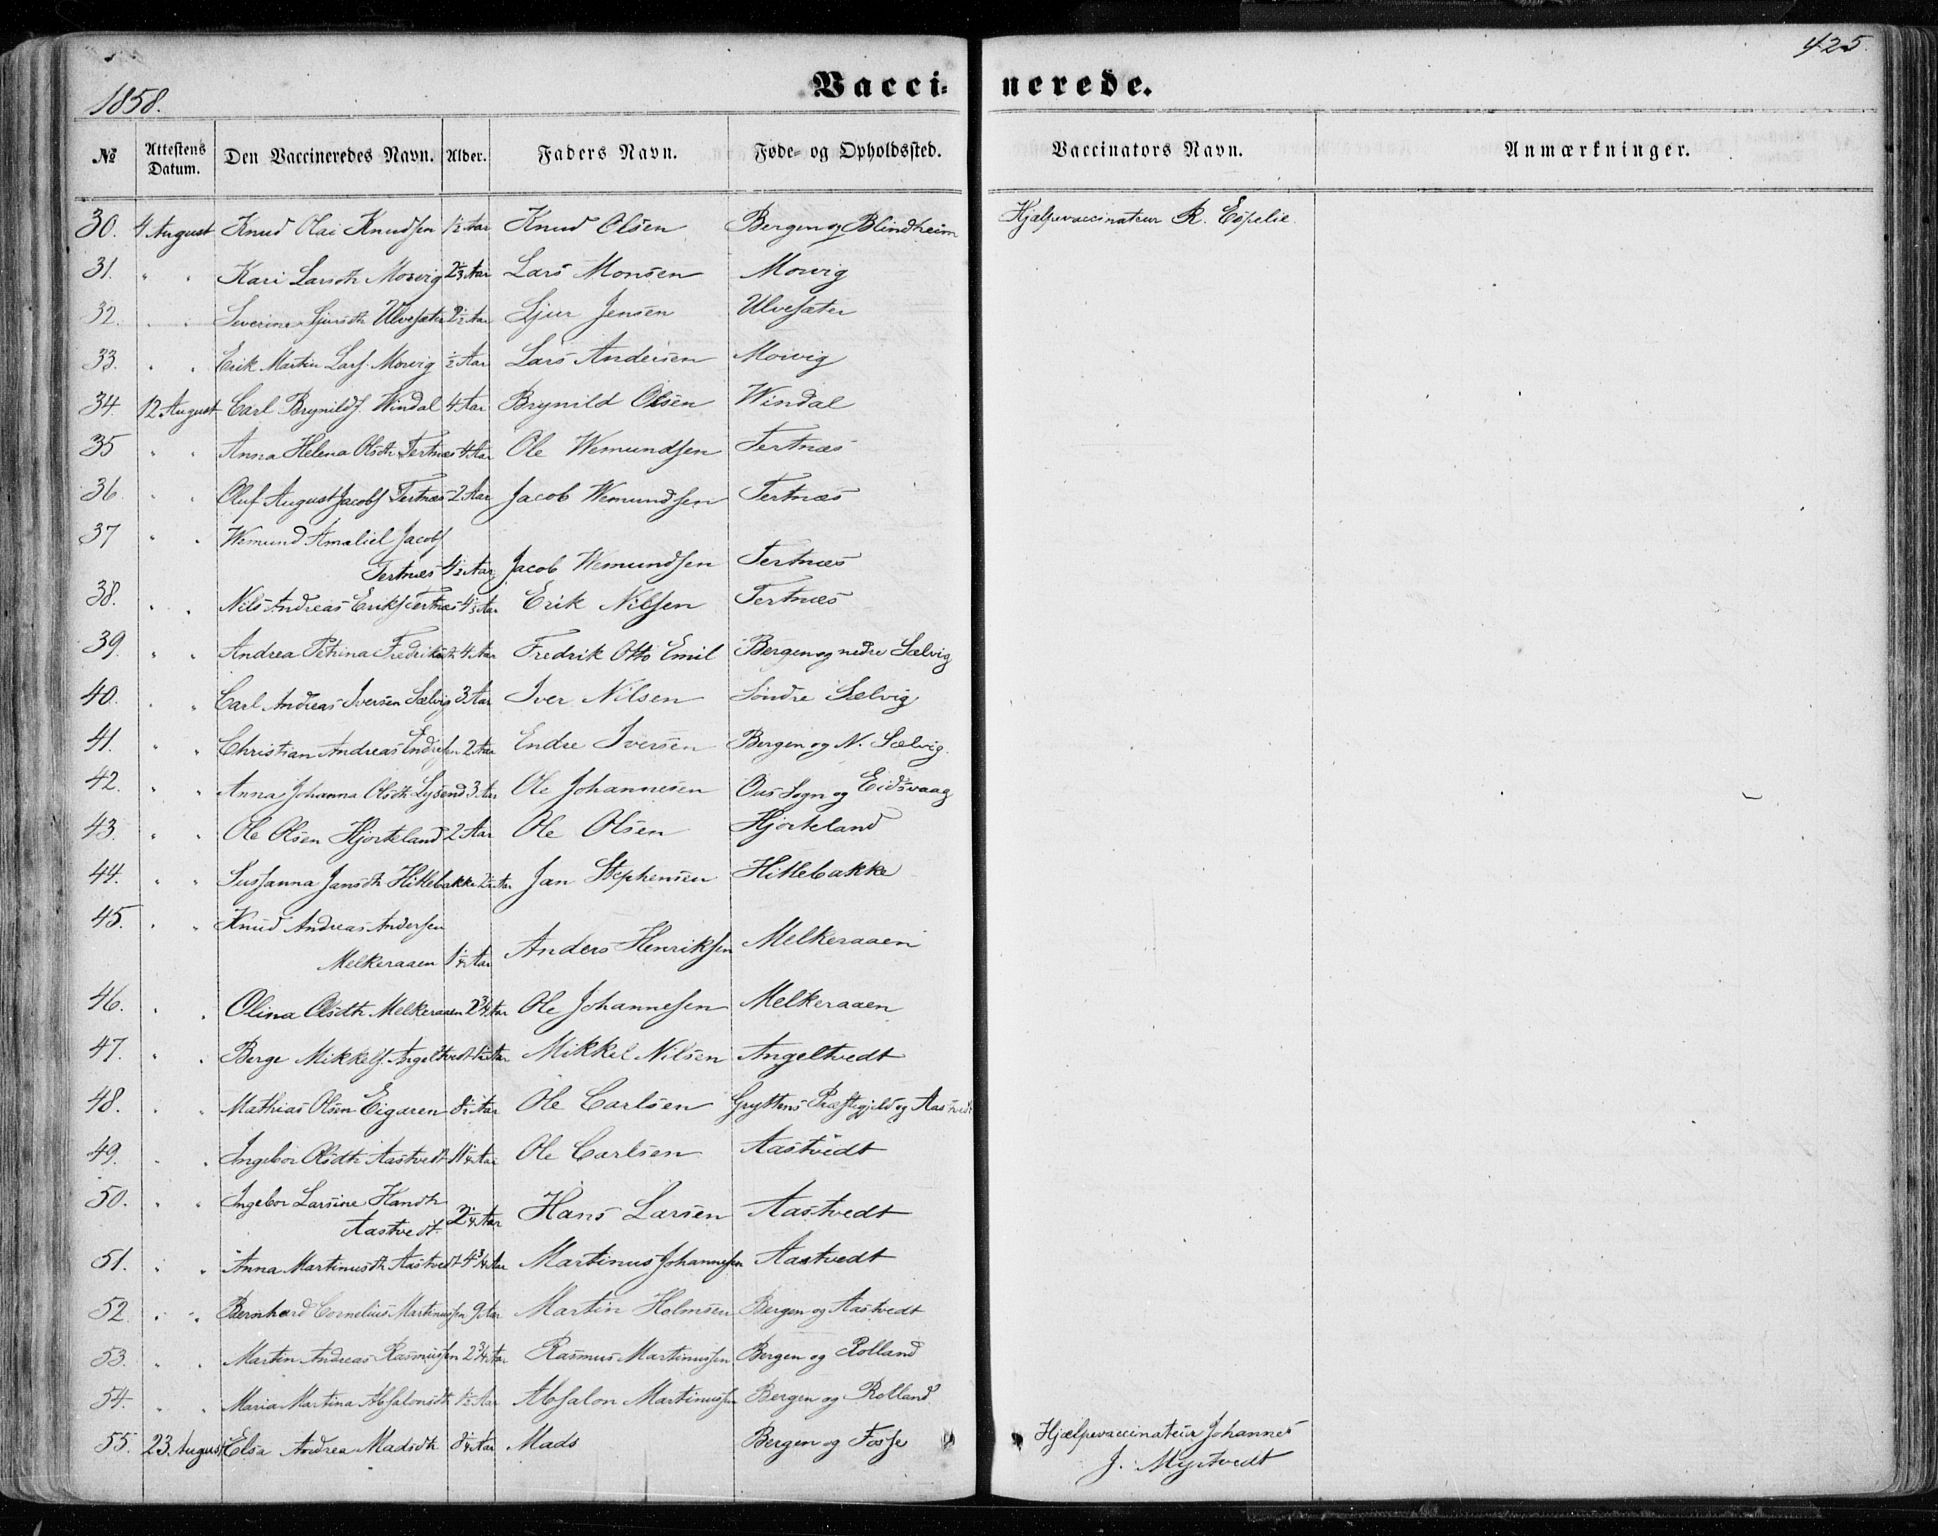 425.
Vaccinerede.
1858.
№ Attestens Datum. Den Vaccineredes Navn. Alder. Faders Navn. Føde- og Opholdssted. Vaccinators Navn. Anmærkninger.
30. 4 August Knud Olai Knudsen 1½ Aar Knud Olsen Bergen og Blindheim Hjælpevaccinateur R. Espelie
31. " " Kari Larsdtr Morvig 2⅓ Aar Lars Monsen Morvig
32. " " Severine Sjursdtr Ulvesæter 2½ Aar Sjur Jensen Ulvesæter
33. " " Erik Martin Lars. Morvig ½ Aar Lars Andersen Morvig
34. 12 August Carl Brynilds. Windal 4 Aar Brynild Olsen Windal
35 " " Anna Helena Olsdtr Tertnæs 4 Aar Ole Wemundsen Tertnæs
36. " " Oluf August Jacobs Tertnæs 2 Aar Jacob Wemundsen Tertnæs
37 " " Wemund Amaliel Jacobs
Tertnæs 4½ Aar Jacob Wemundsen Tertnæs
38. " " Nils Andreas Eriks Tertnæs Aar Erik Nilsen Tertnæs
39. " " Andrea Petrina Fredriksdtr 4 Aar Fredrik Otto Emil Bergen og nedre Sælvig
40. " " Carl Andreas Iversen Sælvig 3 Aar Iver Nilsen Søndre Sælvig
41. " " Christian Andreas Endresen 2 Aar Endre Iversen Bergen og N. Sælvig.
42. " " Anna Johanna Olsdtr 3 Aar Ole Johannesen Ous Sogn og Eidsvaag
43. " " Ole Olsen Hjorteland 2 Aar Ole Olsen Hjorteland
44. " " Susanna Jansdtr Hitlebakke 2½ Aar Jan Stephensen Hitlebakke
45. " " Knud Andreas Andersen
Melkeraaen 1¼ Aar Anders Henriksen Melkeraaen
46. " " Olina Olsdtr Melkeraaen 2¾ Aar Ole Johannesen Melkeraaen
47. " " Berge Mikkels. Angeltvedt Aar Mikkel Nilsen Angeltvedt
48. " " Mathias Olsen Eigaren Aar Ole Carlsen Gryttens Præstegjeld og Aastvedt
49. " " Ingebor Olsdtr Aastvedt Aar Ole Carlsen Aastvedt
50. " " Ingebor Larsine Handtr
Aastvedt. 2¼ Aar Hans Larsen Aastvedt
51. " " Anna Martinusdtr Aastvedt 4¾ Aar Martinus Johannesen Aastvedt
52 " " Bernhard Cornelius Martinussen 9 Aar Martin Holmsen Bergen og Aastvedt
53. " " Martin Andreas Rasmussen 2¾ Aar Rasmus Martinussen Bergen og Rolland
54. " " Maria Martina Absalonsdtr 1½ Aar Absalon Martinussen Bergen og Rolland
55. 23 August Elsa Andrea Madsdtr Aar Mads Bergen og Fosse Hjælpevaccinateur Johannes
J. Myrtvedt